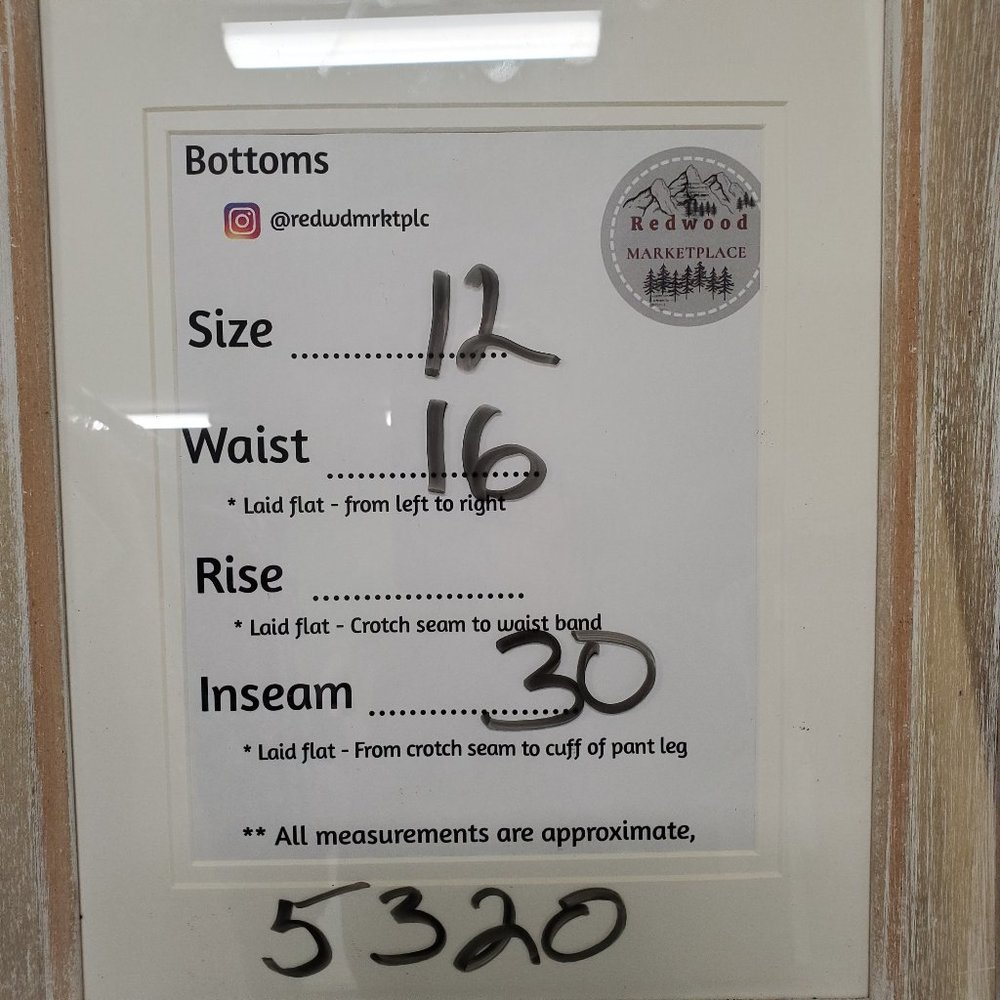 Bottoms
@redwdmrktplc
Redwood
MARKETPLACE
Size .................... 12
Waist .................... 16
* Laid flat - from left to right
Rise ....................
* Laid flat - Crotch seam to waist band
Inseam .................... 30
* Laid flat - From crotch seam to cuff of pant leg
** All measurements are approximate,
5320